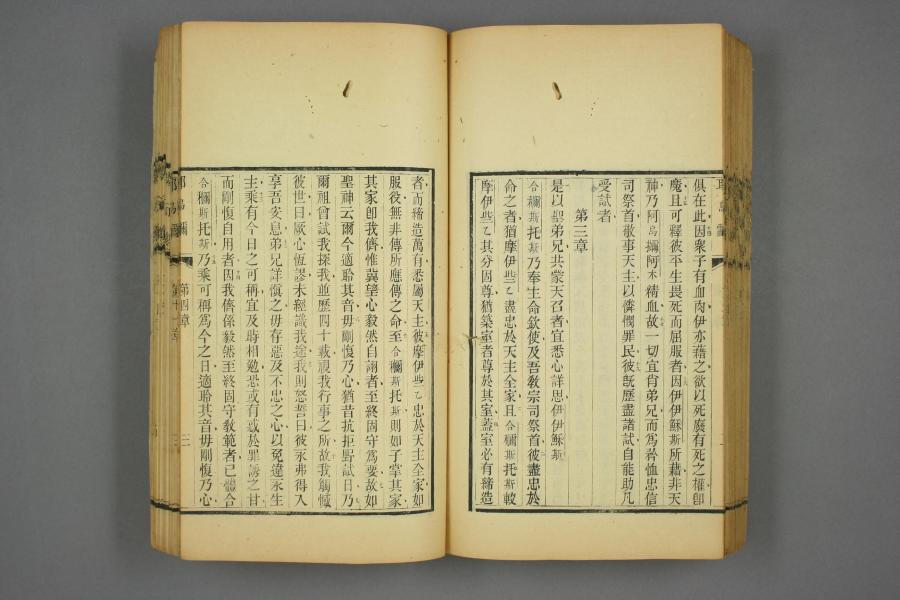 俱在此因衆子有血肉伊亦藉之欲以死廢有死之權卽
魔且可釋彼平生畏死而屈服者因伊伊穌斯所藉非天
神乃阿烏拉阿木精血故一切宜肖弟兄而爲矜恤忠信
司祭首敬事天主以憐憫罪民彼旣歷盡諸試自能助凡
受試者
第三章
是以聖弟兄共蒙天召者宜悉心詳思伊伊穌斯
合利斯托斯乃奉生命欽使及吾敎宗司祭首彼盡忠於
命之者猶摩伊些乙盡忠於天主全家且合利斯托斯較
摩伊些乙其分因尊猶築室者尊於其室蓋室必有締造
者而締造萬有悉屬天主彼摩伊些乙忠於天主全家如
服役無非傳所應傳之命至合利斯托斯則如子掌其家
其家卽我儕惟冀望心毅然自詡者至終固守爲要故如
聖神云爾今適聆其音毋剛愎乃心猶昔抗拒野試日乃
爾祖曾試我探我並歷四十載視我行事之所故我觸憾
彼世曰厥心恆謬未經識我途我則怒誓曰彼永弗得入
享吾安息弟兄詳愼之毋存惡及不忠之心以免違永生
主乘有今日之可稱宜及時相勉恐或有惑於罪誘之甘
而剛愎自用者因我儕係毅然至終固守敎範者已體合
合利斯托斯乃乘可稱爲今之日適聆其音毋剛愎乃心
第四章
三